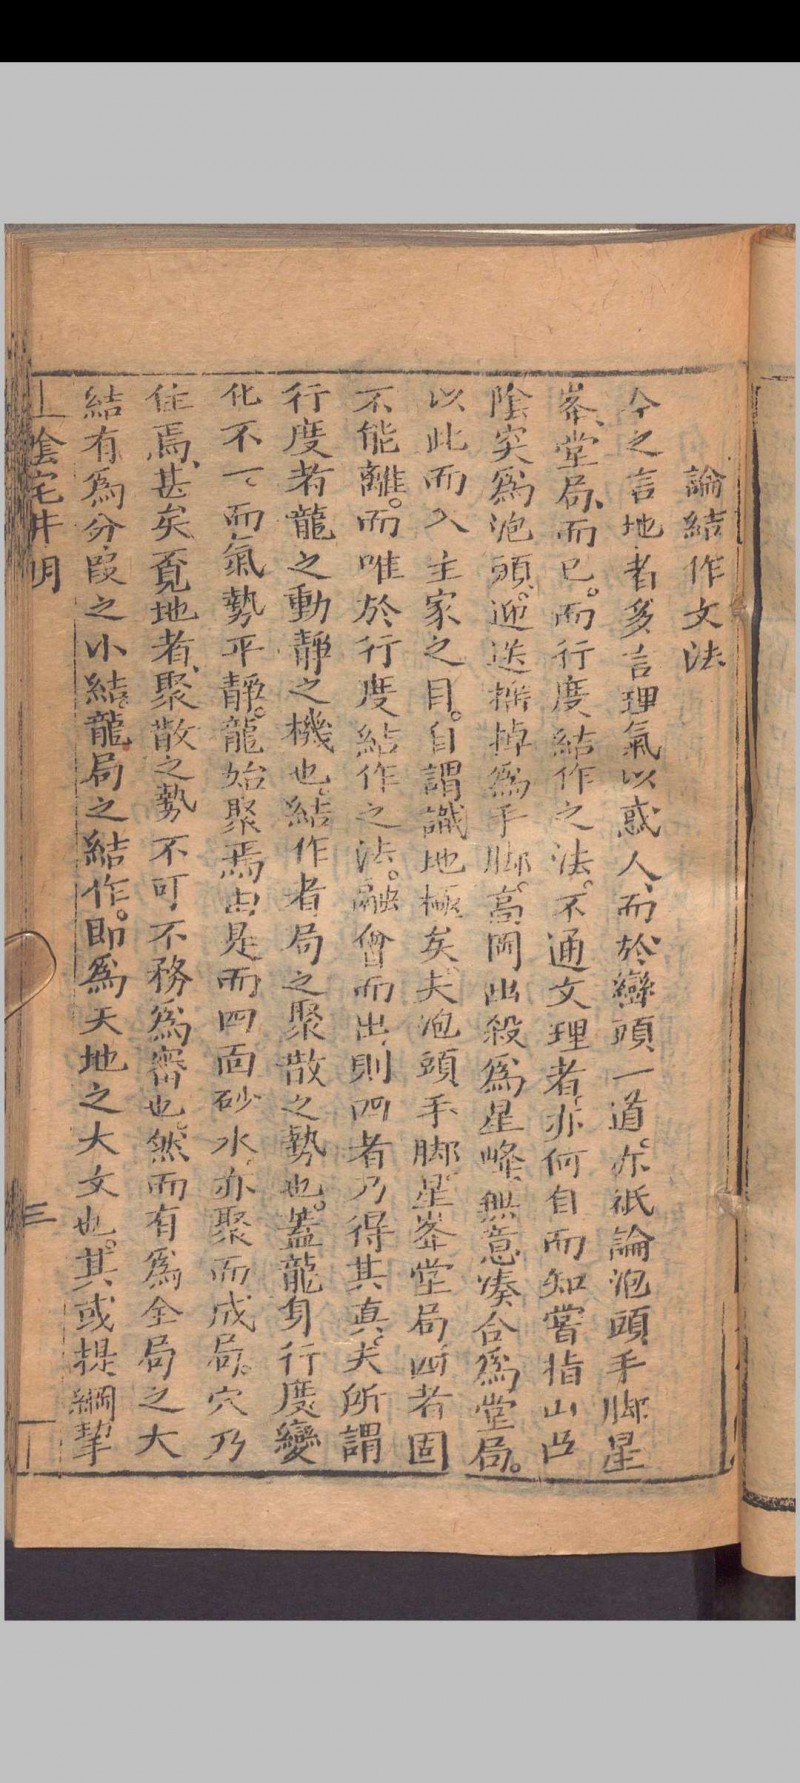 論結作文法
今之言地者多言理氣以惑人而於巒頭一道。亦祇論泡頭手脚星
峯、堂局、而已。而行度結作之法。不通文理者、亦何自而知嘗指山凸
陰突爲泡頭。迎送撐掉爲手脚。高岡出殺爲星峰、無意湊合爲堂局。
以此而入主家之目。自謂識地極矣、夫泡頭手脚星峯堂局四者固
不能離。而唯於行度結作之法。融會而出則四者乃得其真、夫所謂
行度者龍之動靜之機也。結作者局之聚散之勢也。蓋龍身行度變
化不一、而氣勢平靜。龍始聚焉由是而四面砂水亦聚而成局。穴乃
住焉、甚矣覔地者、聚散之勢不可不務爲審也。然而有爲全局之大
結有爲分叚之小結。龍局之結作。即爲天地之大文也。其或提綱挈
陰宅井明
三